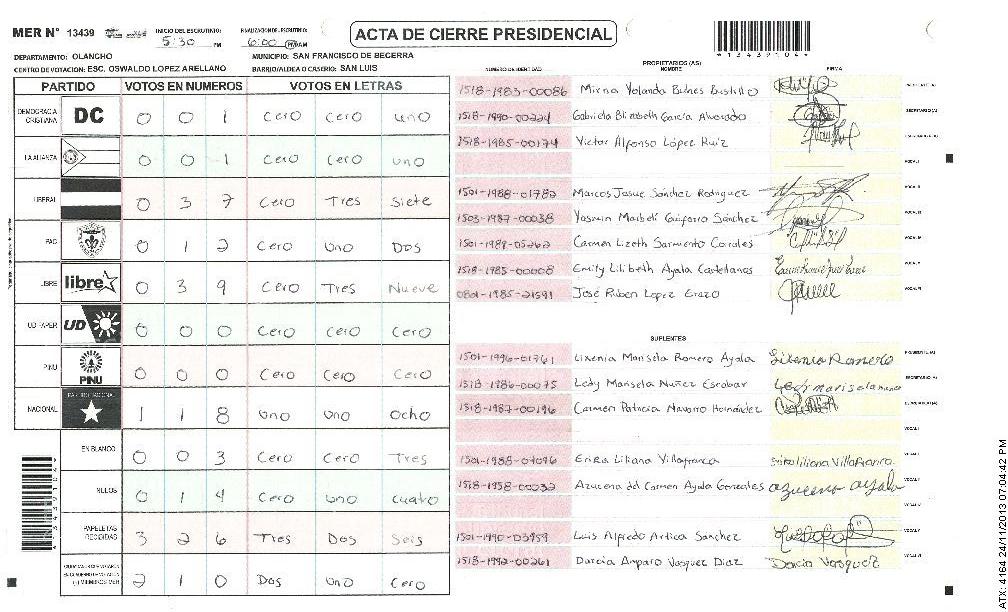 MER N° 13439
INICIO DEL ESCRUTINIO:
5:30 PM
FINALIZACION DE ESCRUTINIO:
6:00 PM/AM
ACTA DE CIERRE PRESIDENCIAL
4134391044
DEPARTAMENTO: OLANCHO
MUNICIPIO: SAN FRANCISCO DE BECERRA
CENTRO DE VOTACION: ESC. OSWALDO LOPEZ ARELLANO
BARRIO/ALDEA O CASERIO: SAN LUIS
PARTIDO VOTOS EN NUMEROS VOTOS EN LETRAS
DEMOCRACIA CRISTIANA DC 0 0 1 Cero Cero uno
LA ALIANZA 0 0 1 Cero Cero uno
LIBERAL 0 3 7 Cero Tres Siete
PAC 0 1 2 Cero Uno Dos
LIBRE libre 0 3 9 Cero Tres Nueve
UD-FAPER UD 0 0 0 Cero Cero Cero
PINU PINU 0 0 0 Cero Cero Cero
NACIONAL PARTIDO NACIONAL 1 1 8 Uno Uno Ocho
EN BLANCO 0 0 3 Cero Cero Tres
NULOS 0 1 4 Cero uno cuatro
PAPELETAS RECIBIDAS 3 2 6 Tres Dos Seis
2 1 0 Dos uno Cero
PROPIETARIOS (AS)
NUMERO DE IDENTIDAD NOMBRE FIRMA
1518-1983-00086 Mirna Yolanda Bustillo
1518-1990-00224 Gabriela Elizabeth García Alvarado
1518-1985-00174 Victor Alfonso López Ruiz
VOCAL I
1501-1988-01782 Marcos Josue Sánchez Rodriguez
1503-1987-00038 Sánchez
Carmen Lizeth Sarmiento
1518-1985-00008 Emily Lilibeth Ayala Castellanos
0801-1985-21591 José Ruben Lopez Erazo
SUPLENTES
1501-1996-01761 Marisela Romero Ayala
1518-1986-00075 Ledy Marisela Nuñez Escobar
1518-1987-00196 Carmen Patricia Navarro Hernández
VOCAL I
Ericka Liliana Villafranca
1518-1958-00032 Azucena del Carmen Ayala Gonzales azucena ayala
1501-1990-03959 Luis Alfredo Artica Sanchez
1518-1992-00261 Darcia Amparo Vasquez Diaz Darcia Vasquez
ATX: 4164 24/11/2013 07:04:42 PM